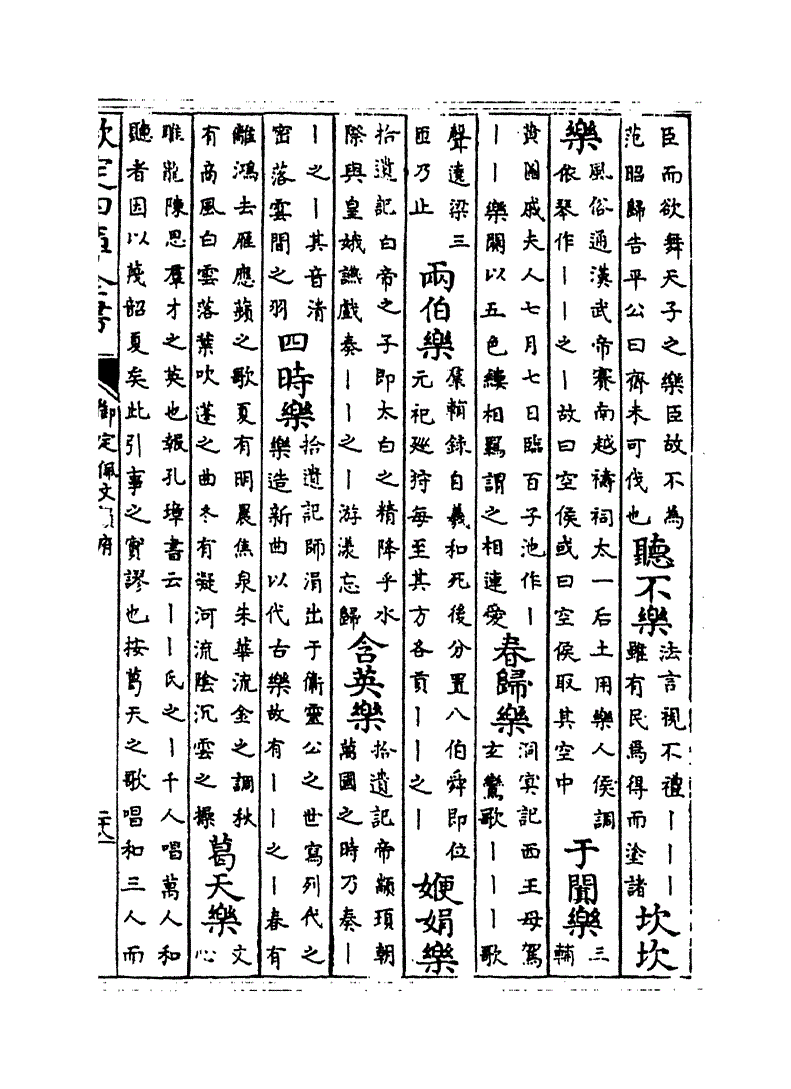 臣而欲舞天子之樂臣故不為
范昭歸告平公曰齊未可伐也
聽不樂
法言視不禮丨丨丨
雖有民焉得而塗諸
坎坎
樂
風俗通漢武帝賽南越禱祠太一后土用樂人侯調
依琴作丨丨之丨故曰空侯或曰空侯取其空中
于闐樂
三
輔
黄圖戚夫人七月七日臨百子池作丨
丨丨樂闋以五色縷相羈謂之相連愛
春歸樂
洞冥記西王母駕
玄鸞歌丨丨丨歌
聲遶梁三
匝乃止
兩伯樂
廣輔録自羲和死後分置八伯舜即位
元祀廵狩每至其方各貢丨丨之丨
㛹娟樂
拾遺記白帝之子即太白之精降乎水
際與皇娥讌戲奏丨丨之丨游漾忘歸
含英樂
拾遺記帝顓頊朝
萬國之時乃奏丨
丨之丨其音清
密落雲間之羽
四時樂
拾遺記師涓出于衞靈公之世寫列代之
樂造新曲以代古樂故有丨丨之丨春有
離鴻去雁應蘋之歌夏有明晨焦泉朱華流金之調秋
有商風白雲落葉吹蓬之曲冬有凝河流陰沉雲之操
葛天樂
文
心
雕龍陳思羣才之英也報孔璋書云丨丨氏之丨千人唱萬人和
聽者因以蔑韶夏矣此引事之實謬也按葛天之歌唱和三人而
欽定四庫全書
御定佩文韻府